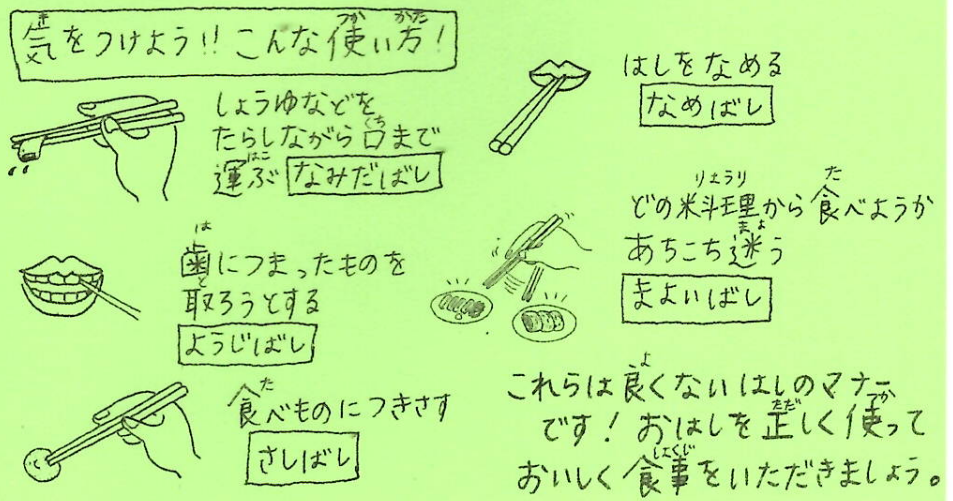 気をつけよう!! こんな使い方!
しょうゆなどを
たらしながら口まで
運ぶ なみだばし
歯につまったものを
取ろうとする
ようじばし
食べものにつきさす
さしばし
はしをなめる
なめばし
どの料理から食べようか
あちこち迷う
まよいばし
これらは良くないはしのマナー
です! おはしを正しく使って
おいしく食事をいただきましょう。